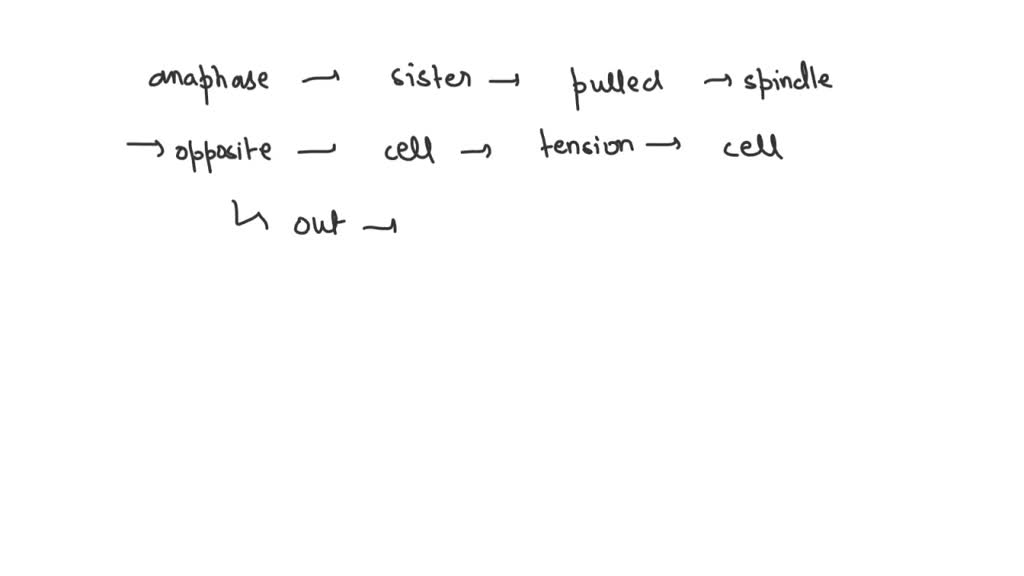 anaphase → sister → pulled → spindle
→ opposite — cell → tension → cell
↳ out →